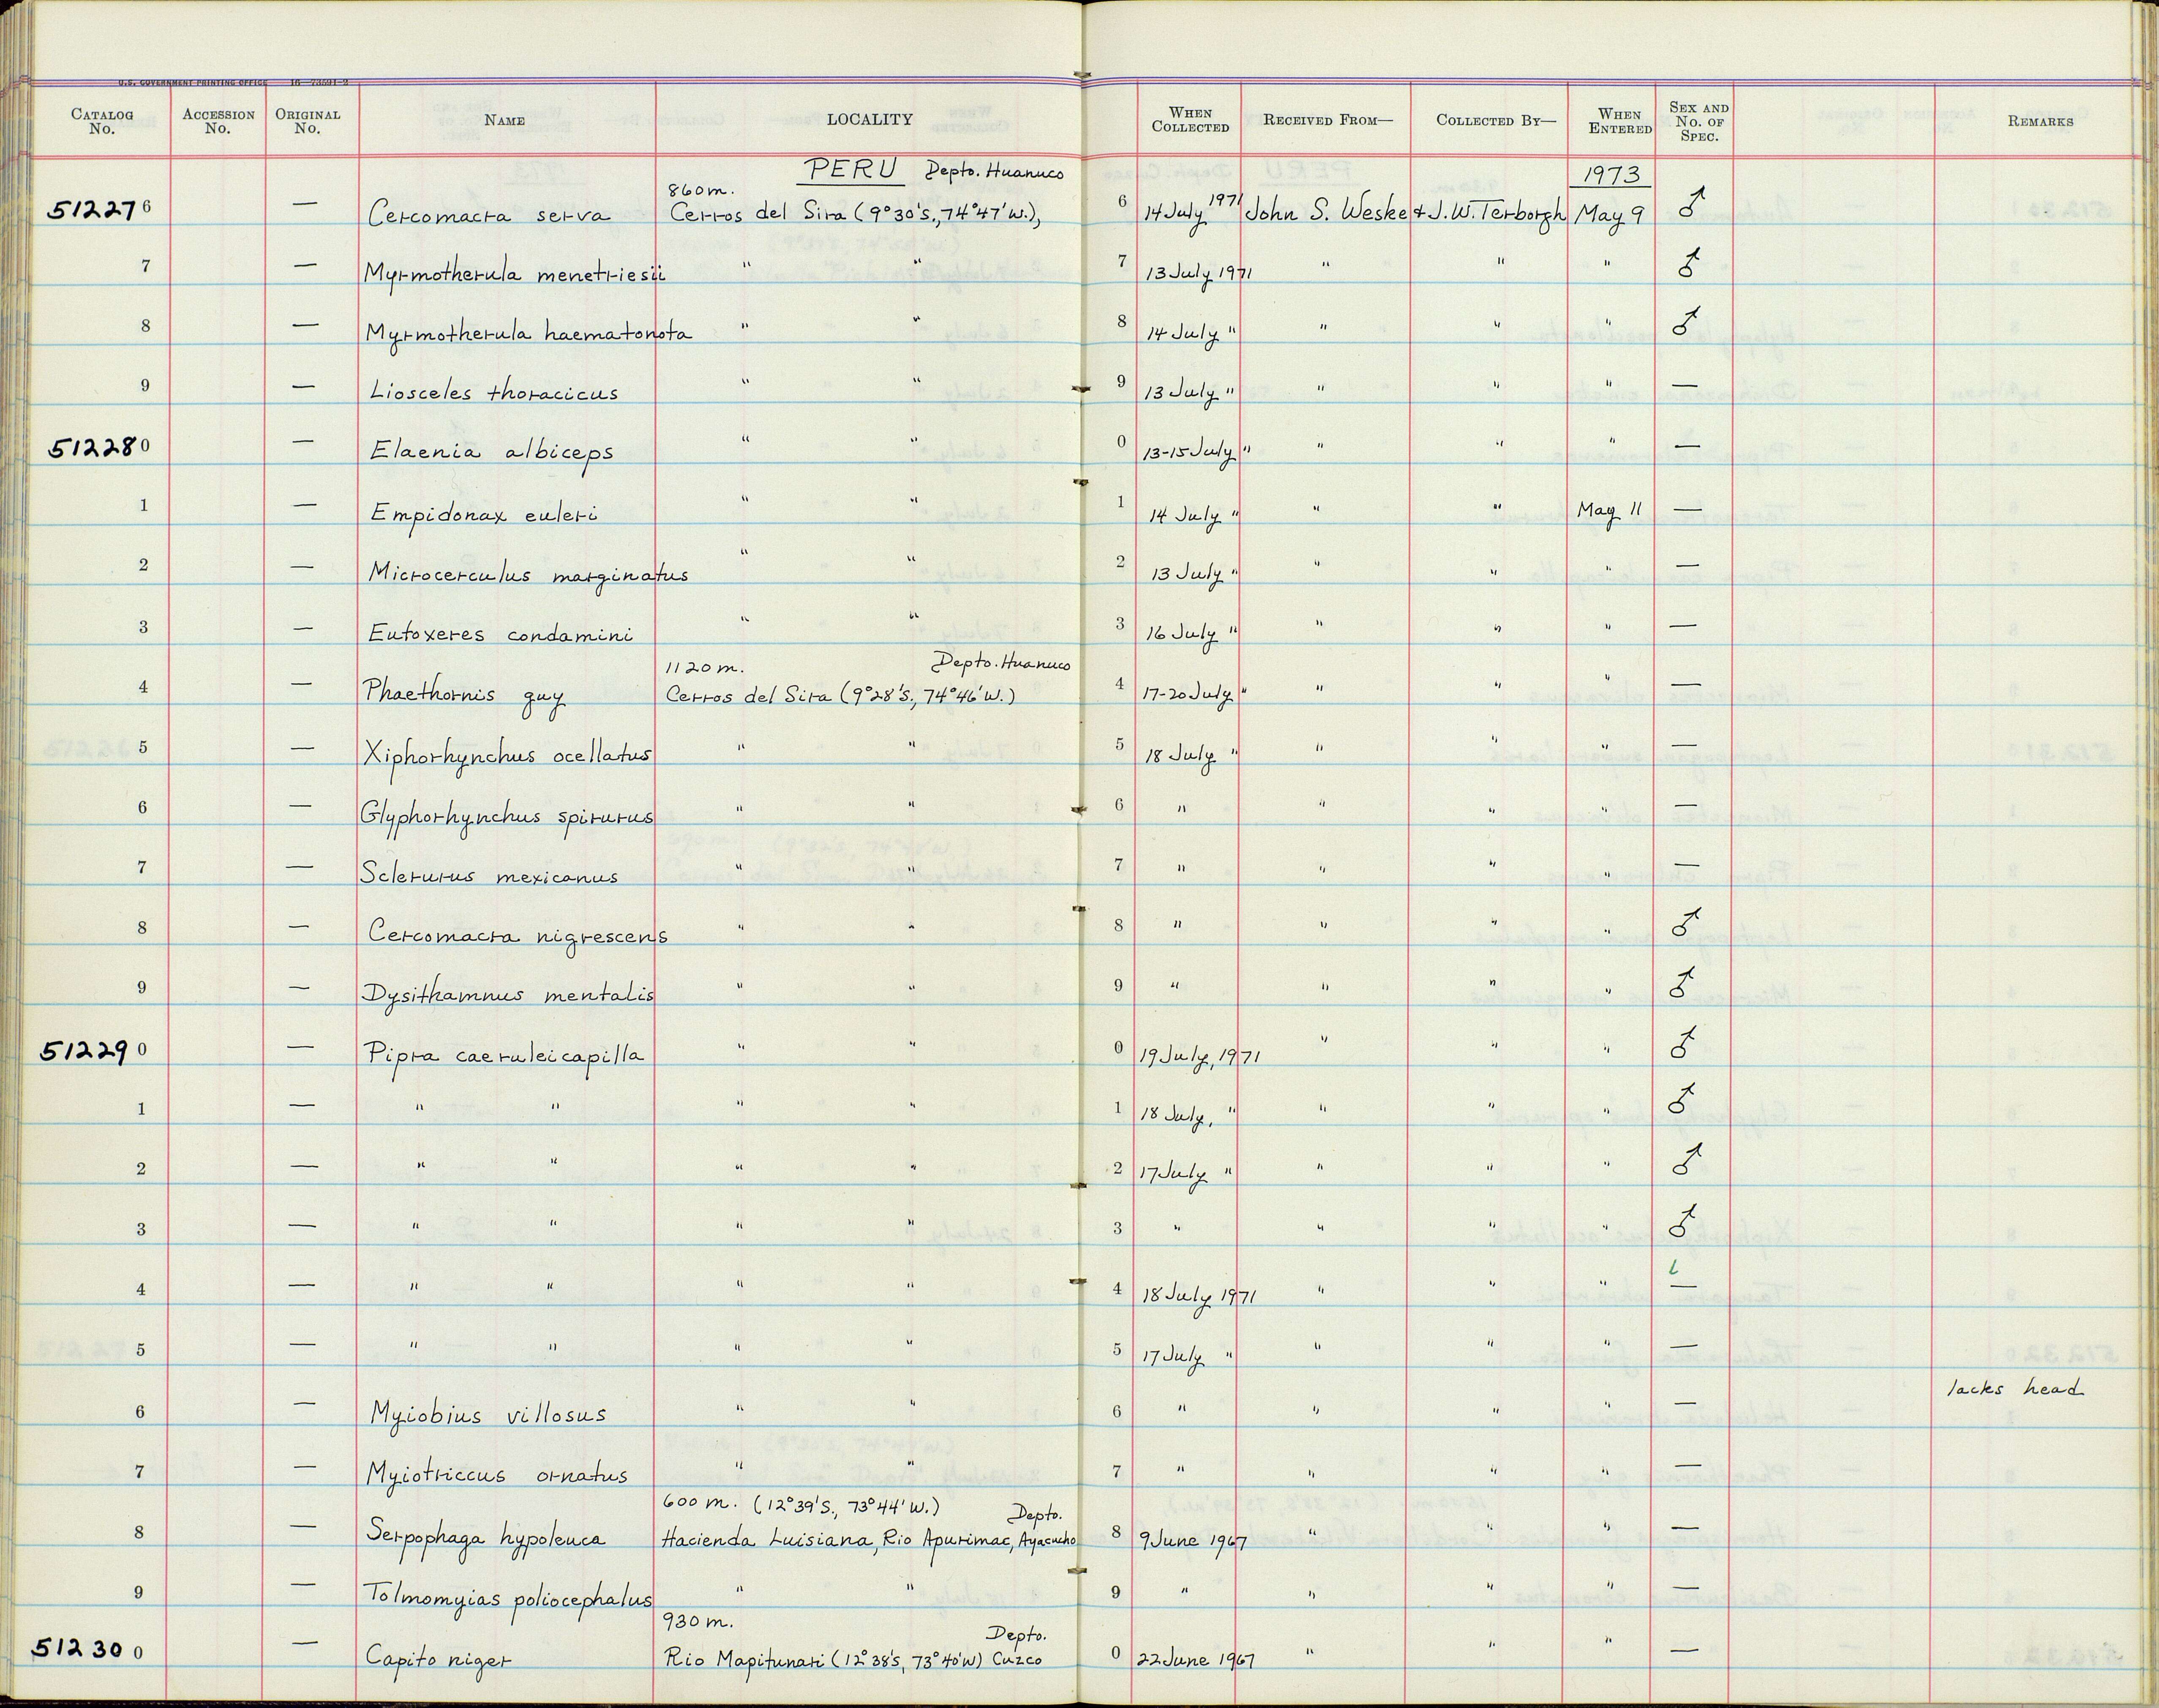 U.S. GOVERNMENT PRINTING OFFICE 16—73591-2
CATALOG No. ACCESSION No. ORIGINAL No. NAME LOCALITY WHEN COLLECTED RECEIVED FROM— COLLECTED BY— WHEN ENTERED SEX AND No. OF SPEC. REMARKS
PERU Depto. Huanuco 1973
860m.
512276 — Cercomacra serva Cerros del Sira (9°30's., 74°47'w.), 6 14 July 1971 John S. Weske & J.W. Terborgh May 9 ♂
7 — Myrmotherula menetriesii " " 7 13 July 1971 " " " ♂
8 — Myrmotherula haematonota " " 8 14 July " " " " ♂
9 — Liosceles thoracicus " " 9 13 July " " " " —
512280 — Elaenia albiceps " " 0 13-15 July " " " " —
1 — Empidonax euleri " " 1 14 July " " " May 11 —
2 — Microcerculus marginatus " " 2 13 July " " " " —
3 — Eutoxeres condamini " " 3 16 July " " " " —
1120 m. Depto. Huanuco
4 — Phaethornis guy Cerros del Sira (9°28's., 74°46'w.) 4 17-20 July " " " " —
5 — Xiphorhynchus ocellatus " " 5 18 July " " " " —
6 — Glyphorhynchus spirurus " " 6 " " " " —
7 — Sclerurus mexicanus " " 7 " " " " —
8 — Cercomacra nigrescens " " 8 " " " " ♂
9 — Dysithamnus mentalis " " 9 " " " " ♂
512290 — Pipra caeruleicapilla " " 0 19 July, 1971 " " " ♂
1 — " " " " 1 18 July, " " " " ♂
2 — " " " " 2 17 July " " " " ♂
3 — " " " " 3 " " " " ♂
4 — " " " " 4 18 July 1971 " " " —
5 — " " " " 5 17 July " " " " —
6 — Myiobius villosus " " 6 " " " " — lacks head
7 — Myiotriccus ornatus " " 7 " " " " —
600 m. (12°39's., 73°44' w.) Depto.
8 — Serpophaga hypoleuca Hacienda Luisiana, Rio Apurimac, Ayacucho 8 9 June 1967 " " " —
9 — Tolmomyias poliocephalus " " 9 " " " " —
930 m. Depto.
512300 — Capito niger Rio Mapitunari (12°38's, 73°40'w) Cuzco 0 22 June 1967 " " " —